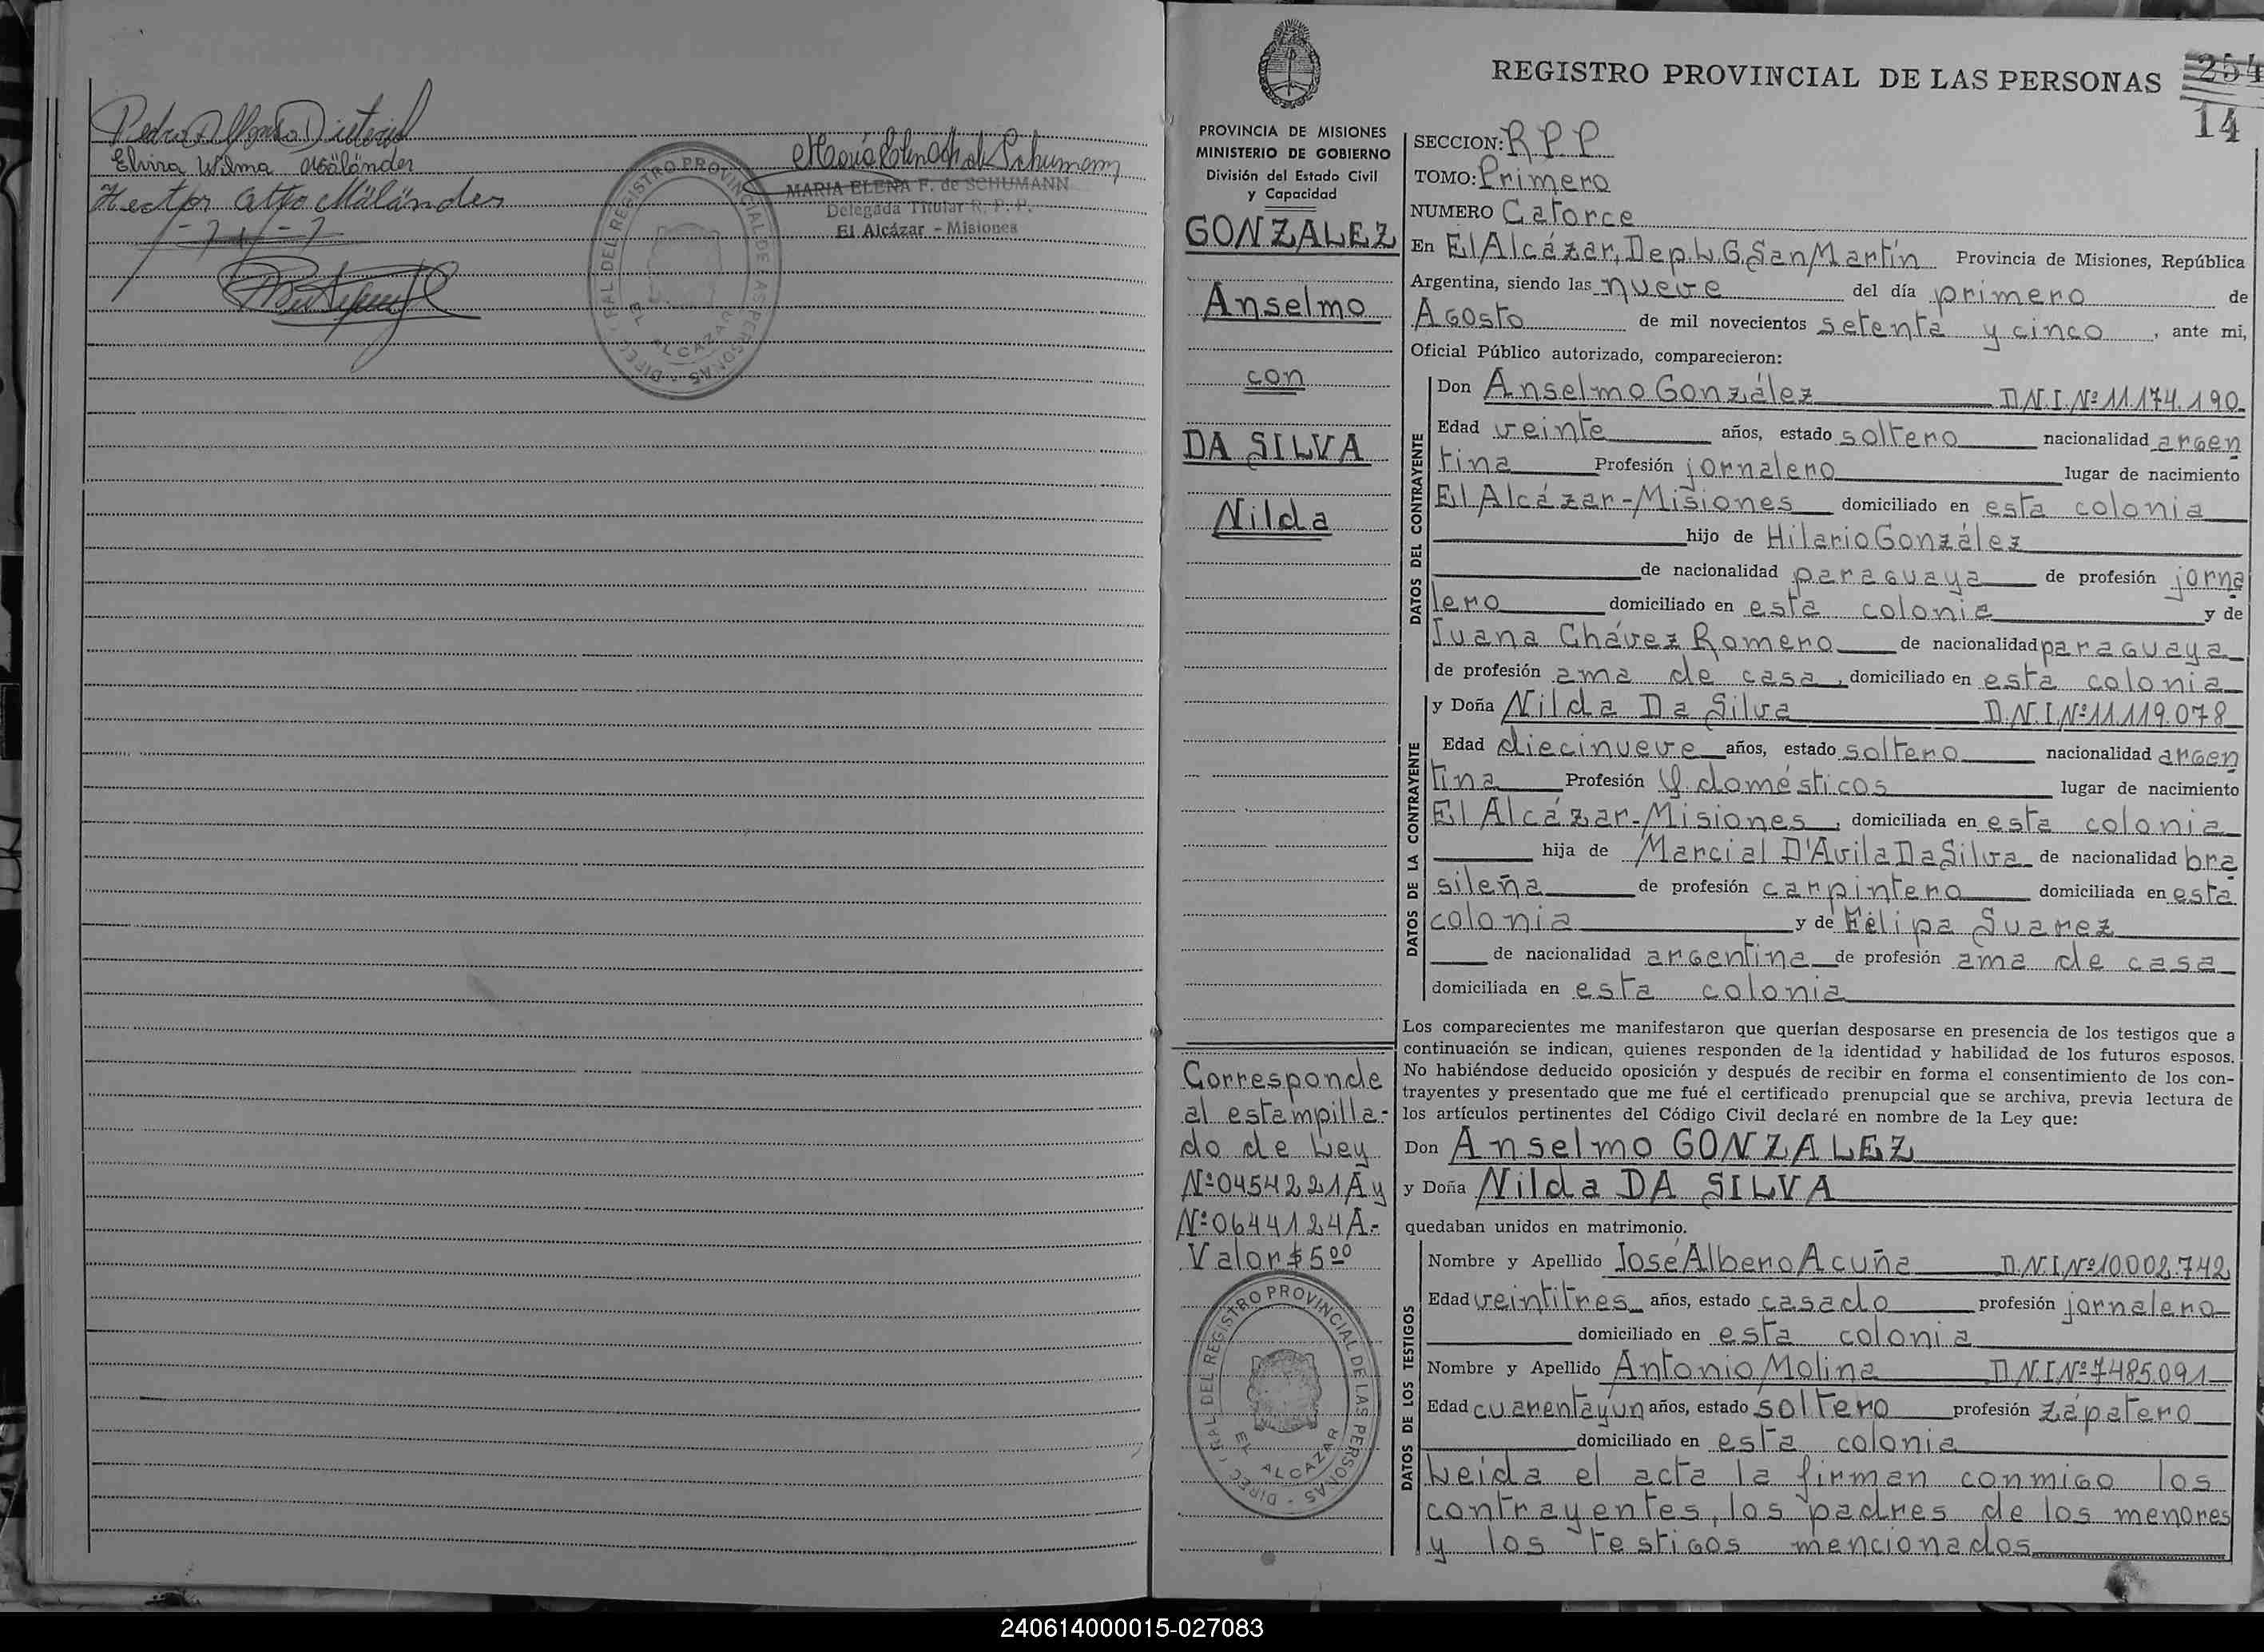 Elvira Wilma Mäländer
Hector Otto Mäländer
MARIA ELENA F. de SCHUMANN
Delegada Titular R. P. P.
El Alcázar - Misiones
DIREC. GRAL DEL REGISTRO PROVINCIAL DE LAS PERSONAS
EL ALCAZAR
REGISTRO PROVINCIAL DE LAS PERSONAS
254
14
PROVINCIA DE MISIONES
MINISTERIO DE GOBIERNO
División del Estado Civil
y Capacidad
GONZALEZ
Anselmo
con
DA SILVA
Nilda
Corresponde
al estampilla-
do de Ley
Nº0454221A y
Nº0644124A.-
Valor $ 5 00
DIREC. GRAL DEL REGISTRO PROVINCIAL DE LAS PERSONAS
EL ALCAZAR
SECCION: R P P
TOMO: Primero
NUMERO Catorce
En El Alcázar, Dep. L. G. San Martín Provincia de Misiones, República
Argentina, siendo las nueve del día primero de
Agosto de mil novecientos setenta y cinco, ante mi,
Oficial Público autorizado, comparecieron:
DATOS DEL CONTRAYENTE
Don Anselmo González D.N.I. Nº 11.174.190
Edad veinte años, estado soltero nacionalidad argen
tina Profesión jornalero lugar de nacimiento
El Alcázar-Misiones domiciliado en esta colonia
hijo de Hilario González
de nacionalidad paraguaya de profesión jorna
lero domiciliado en esta colonia y de
Juana Chávez Romero de nacionalidad paraguaya
de profesión ama de casa, domiciliado en esta colonia
DATOS DE LA CONTRAYENTE
y Doña Nilda Da Silva D.N.I. Nº 11.119.078
Edad diecinueve años, estado soltero nacionalidad argen
tina Profesión Q. domésticos lugar de nacimiento
El Alcázar-Misiones, domiciliada en esta colonia
hija de Marcial D'Avila Da Silva de nacionalidad bra
sileña de profesión carpintero domiciliada en esta
colonia y de Felipa Suarez
de nacionalidad argentina de profesión ama de casa
domiciliada en esta colonia
Los comparecientes me manifestaron que querían desposarse en presencia de los testigos que a
continuación se indican, quienes responden de la identidad y habilidad de los futuros esposos.
No habiéndose deducido oposición y después de recibir en forma el consentimiento de los con-
trayentes y presentado que me fué el certificado prenupcial que se archiva, previa lectura de
los artículos pertinentes del Código Civil declaré en nombre de la Ley que:
Don Anselmo GONZALEZ
y Doña Nilda DA SILVA
quedaban unidos en matrimonio.
DATOS DE LOS TESTIGOS
Nombre y Apellido José Albero Acuña D.N.I. Nº 10.002.742
Edad veintitres años, estado casado profesión jornalero
domiciliado en esta colonia
Nombre y Apellido Antonio Molina D.N.I. Nº 7485.091
Edad cuarentayún años, estado soltero profesión zapatero
domiciliado en esta colonia
Leída el acta la firman conmigo los
contrayentes, los padres de los menores
y los testigos mencionados
240614000015-027083